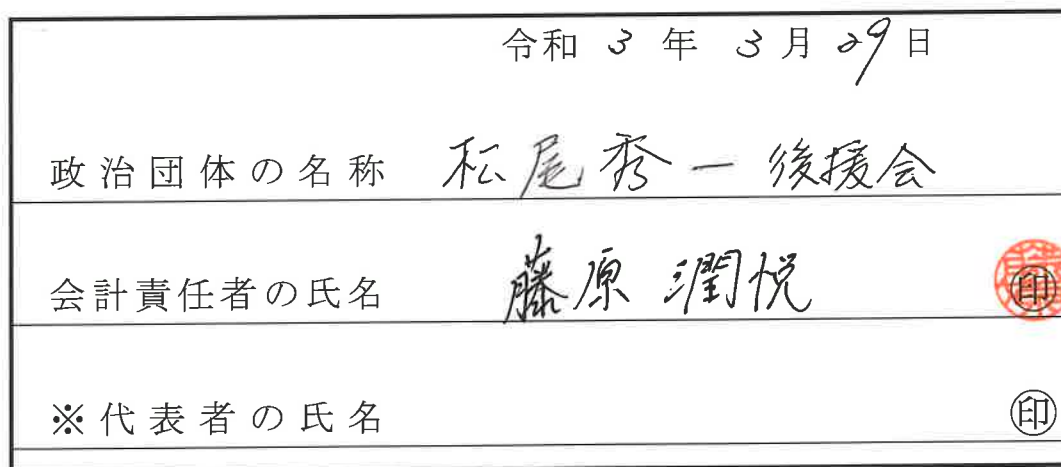 令和 3 年 3 月 29 日
政治団体の名称 松尾秀一後援会
会計責任者の氏名 藤原潤悦 印
※代表者の氏名 印